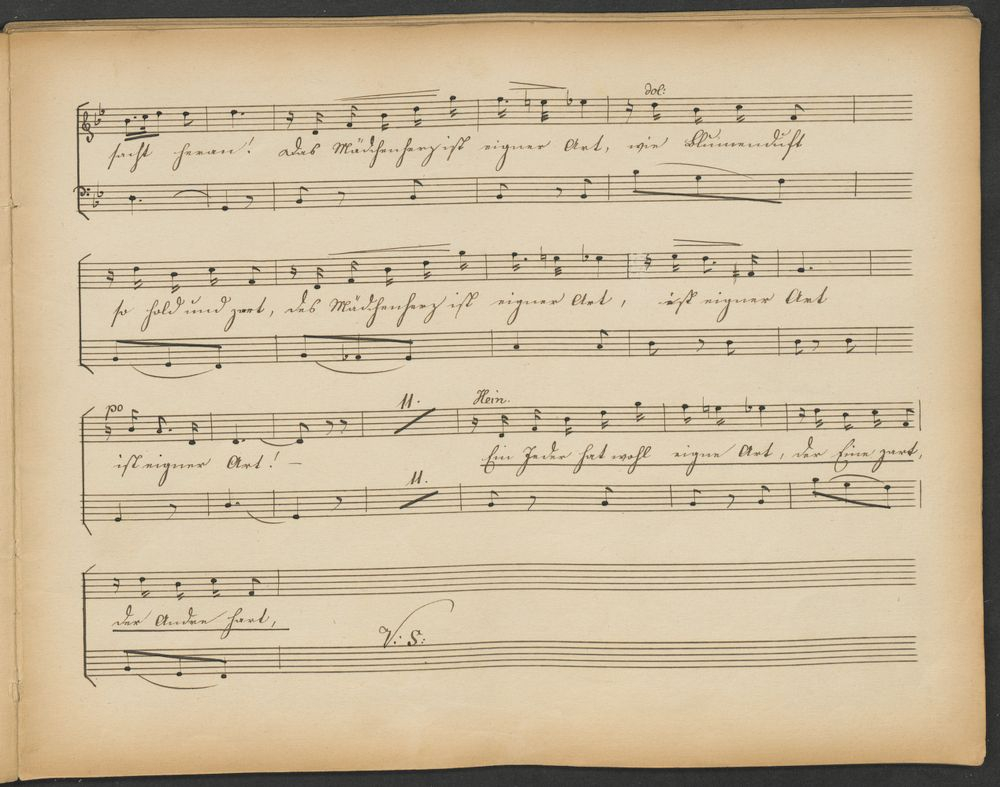 dol:
sacht heran! Das Mädchenherz ist eigner Art, wie Blumenduft
so hold und zart, des Mädchenherz ist eigner Art, ist eigner Art
po
11.
Hein.
ist eigner Art! – Ein Jeder hat wohl eigne Art, der Eine zart,
11.
der Andre hart,
V: S: